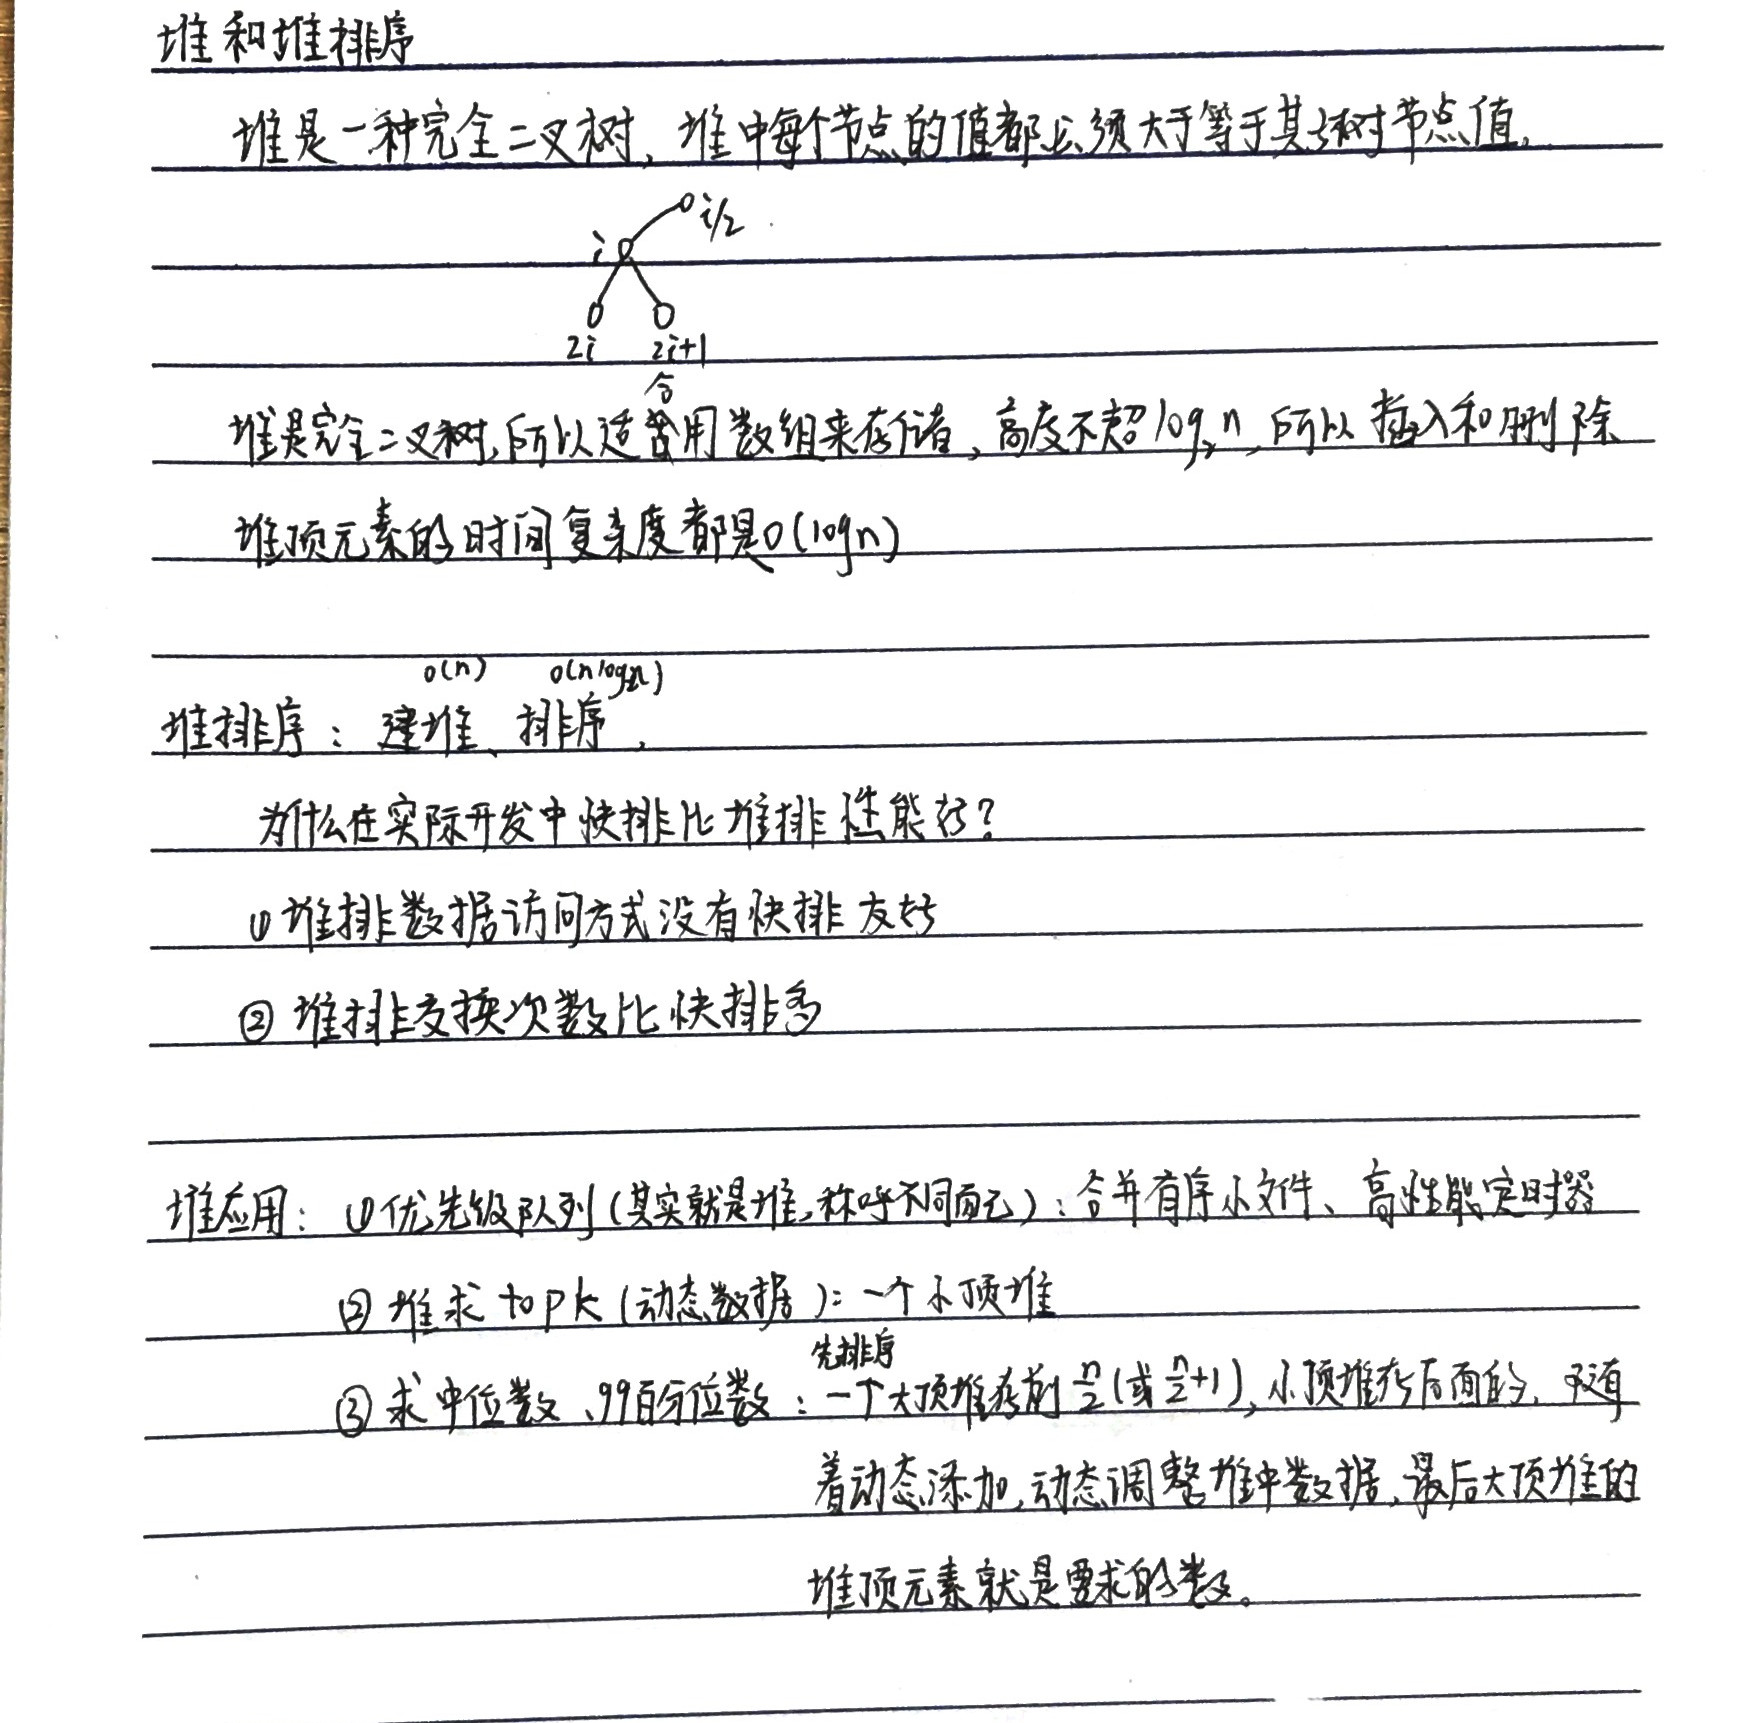 堆和堆排序
堆是一种完全二叉树，堆中每个节点的值都必须大于等于其子树节点值，
i/2
i
2i 2i+1
堆是完全二叉树，所以适合用数组来存储，高度不超log₂n，所以插入和删除
堆顶元素的时间复杂度都是O(logn)
O(n) O(nlogn)
堆排序：建堆、排序，
为什么在实际开发中快排比堆排性能好？
① 堆排数据访问方式没有快排友好
② 堆排交换次数比快排多
堆应用：①优先级队列(其实就是堆，称呼不同而已)：合并有序小文件、高性能定时器
② 堆求top k (动态数据)：一个小顶堆
先排序
③ 求中位数、99百分位数：一个大顶堆存前n/2(或n/2+1)，小顶堆存后面的，随
着动态添加，动态调整堆中数据，最后大顶堆的
堆顶元素就是要求的数。